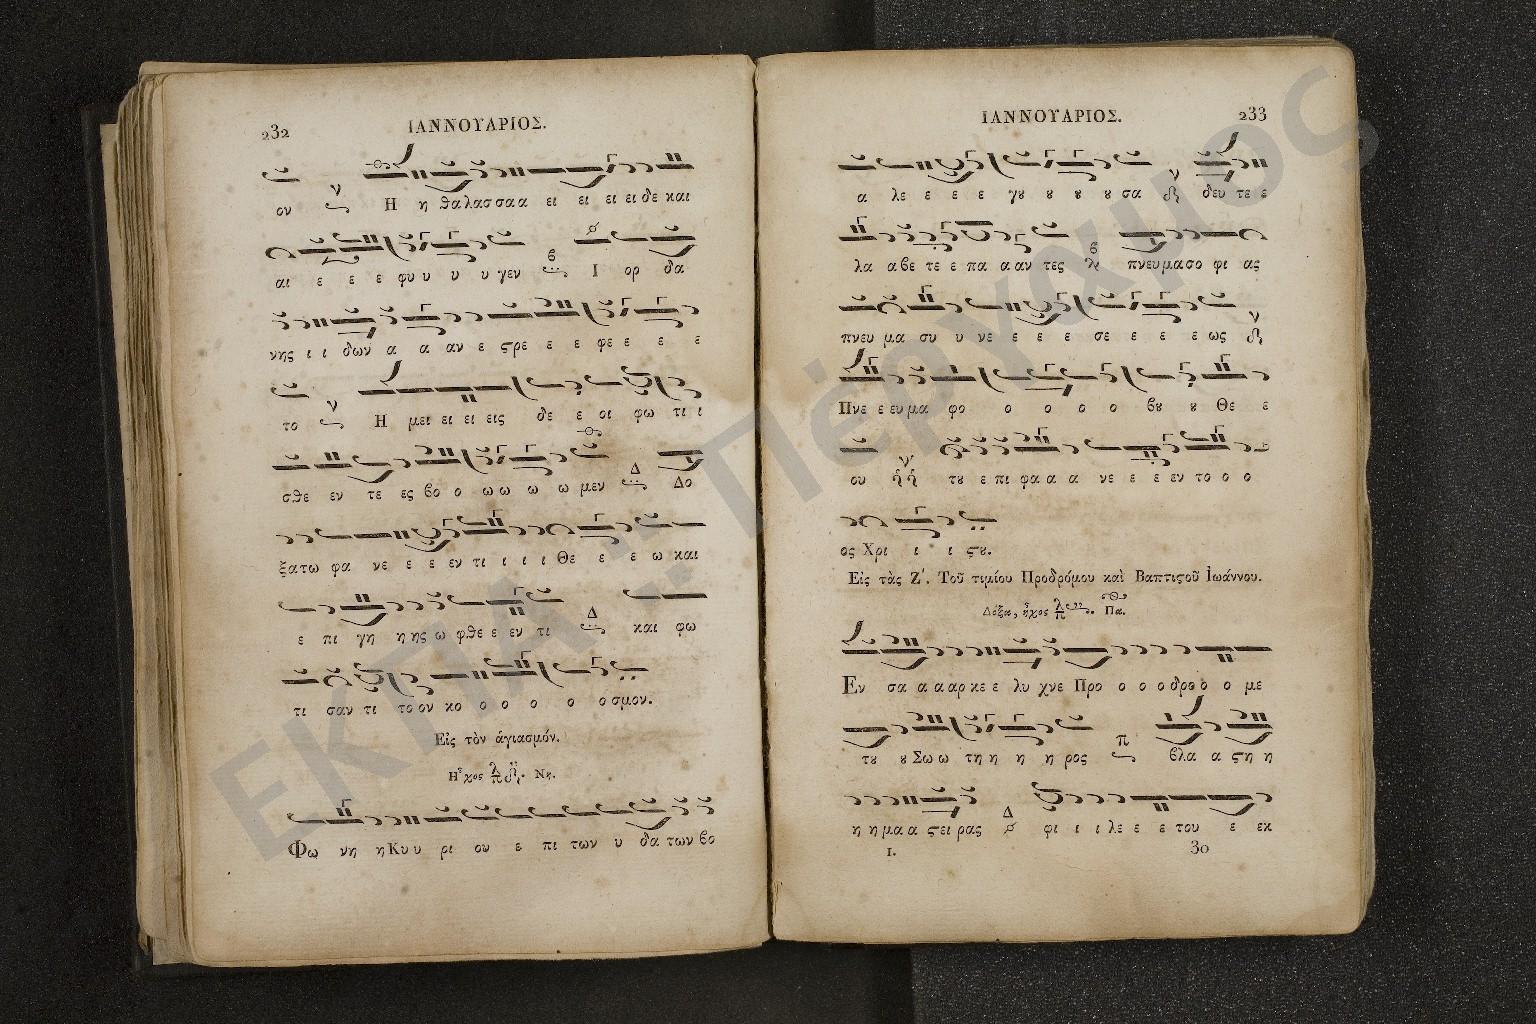 232
ΙΑΝΝΟΥΑΡΙΟΣ.
ον Η η θα λασσα α ει ει ει ει δε και
αι ε ε ε φυ υ υ υ γεν Ι ορ δα
νης ι ι δων α α αν ε ϛρε ε ε φε ε ε ε
το Η μει ει ει εις δε ε οι φω τι ι
σθε εν τε ες βο ο ω ω ω ω μεν Δο
ξα τω φα νε ε ε εν τι ι ι ι Θε ε ε ω και
ε πι γη η ης ω φθε ε εν τι και φω
τι σαν τι το ον κο ο ο ο ο ο σμον.
Εἰς τὸν ἁγιασμόν.
Ηχος Νη.
Φω νη η Κυ υ ρι ου ε πι των υ δα των βο
ΙΑΝΝΟΥΑΡΙΟΣ.
233
α λε ε ε ε γȣ ȣ ȣ ȣ σα δευ τε ε
λα α βε τε ε πα α αν τες πνευ μα σο φι ας
πνευ μα συ υ νε ε ε ε σε ε ε ε ως
Πνε ε ευ μα φο ο ο ο ο βȣ ȣ Θε ε
ου τȣ ε πι φα α α νε ε ε εν το ο ο
ος Χρι ι ι ϛȣ.
Εἰς τὰς Ζ΄. Τοῦ τιμίου Προδρόμου καὶ Βαπτιϛοῦ Ἰωάννου.
Δόξα, ἦχος Πα.
Εν σα α α αρ κε ε λυ χνε Προ ο ο ο δρο ο ο με
τȣ ȣ Σω ω τη η η η ρος βλα α ϛη η
η η μα α ϛει ρας φι ι ι λε ε ε του ε εκ
I.
30
ΕΚΠΑ "Πέργαμος